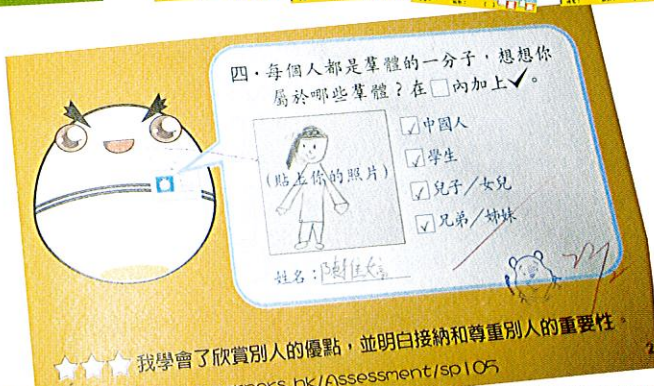 四．每個人都是羣體的一分子，想想你
屬於哪些羣體？在□內加上✓。
(貼上你的照片)
☑中國人
☑學生
☑兒子／女兒
☑兄弟／姊妹
姓名：陳佳
☆☆☆ 我學會了欣賞別人的優點，並明白接納和尊重別人的重要性。
.hk/Assessment/sp105
2